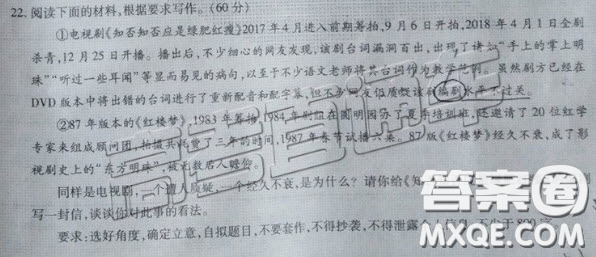 22. 阅读下面的材料,根据要求写作。(60分)
①电视剧《知否知否应是绿肥红瘦》2017年4月进入前期筹拍,9月6日开拍,2018年4月1日全剧
杀青,12月25日开播。播出后,不少细心的网友发现,该剧台词漏洞百出,出现了诸如“手上的掌上明
珠”“听过一些耳闻”等显而易见的病句,以至于不少语文老师将其台词作为教学
虽然剧方已经在
DVD版本中将出错的台词进行了重新配音和配字幕,但不少网友仍
该剧编剧水平不过关。
②87年版本的《红楼梦》,1983年筹拍,1984年剧组在圆明园办了
培训班,还邀请了20位红学
专家来组成顾问团,拍摄共
了三年的时间,1987年春节试播六集。87版《红楼梦》经久不衰,成了影
视剧史上的“东方明珠”,被无数后人
同样是电视剧,一个遭人质疑,一个经久不衰,是为什么?请你给《知
写一封信,谈谈你对此事的看法。
要求:选好角度,确定立意,自拟题目,不要套作,不得抄袭,不得泄露个人信息,不少于800字
答案卷
MXQE.COM